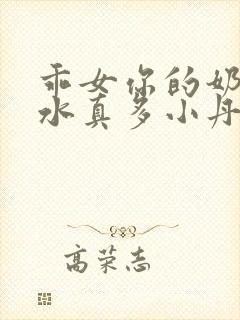 乖女你的奶
水真多小丹
高荣志